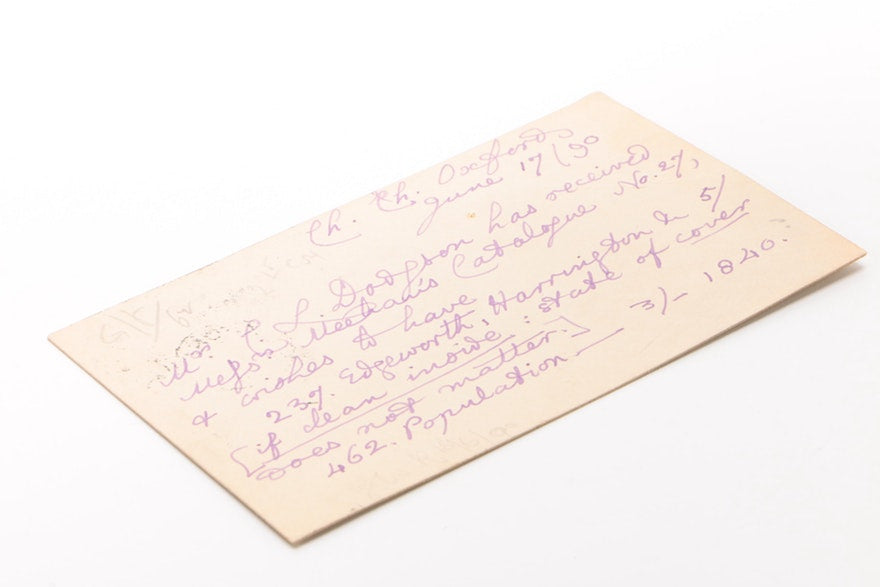 Ch. Ch. Oxford
June 17/90
Mr. C L Dodgson has received
Messrs Meehan's Catalogue No. 27,
& wishes to have
237. Edgeworth, Harrington & 5/
[if clean inside: state of cover
does not matter.]
462. Population — 3/- 1840.